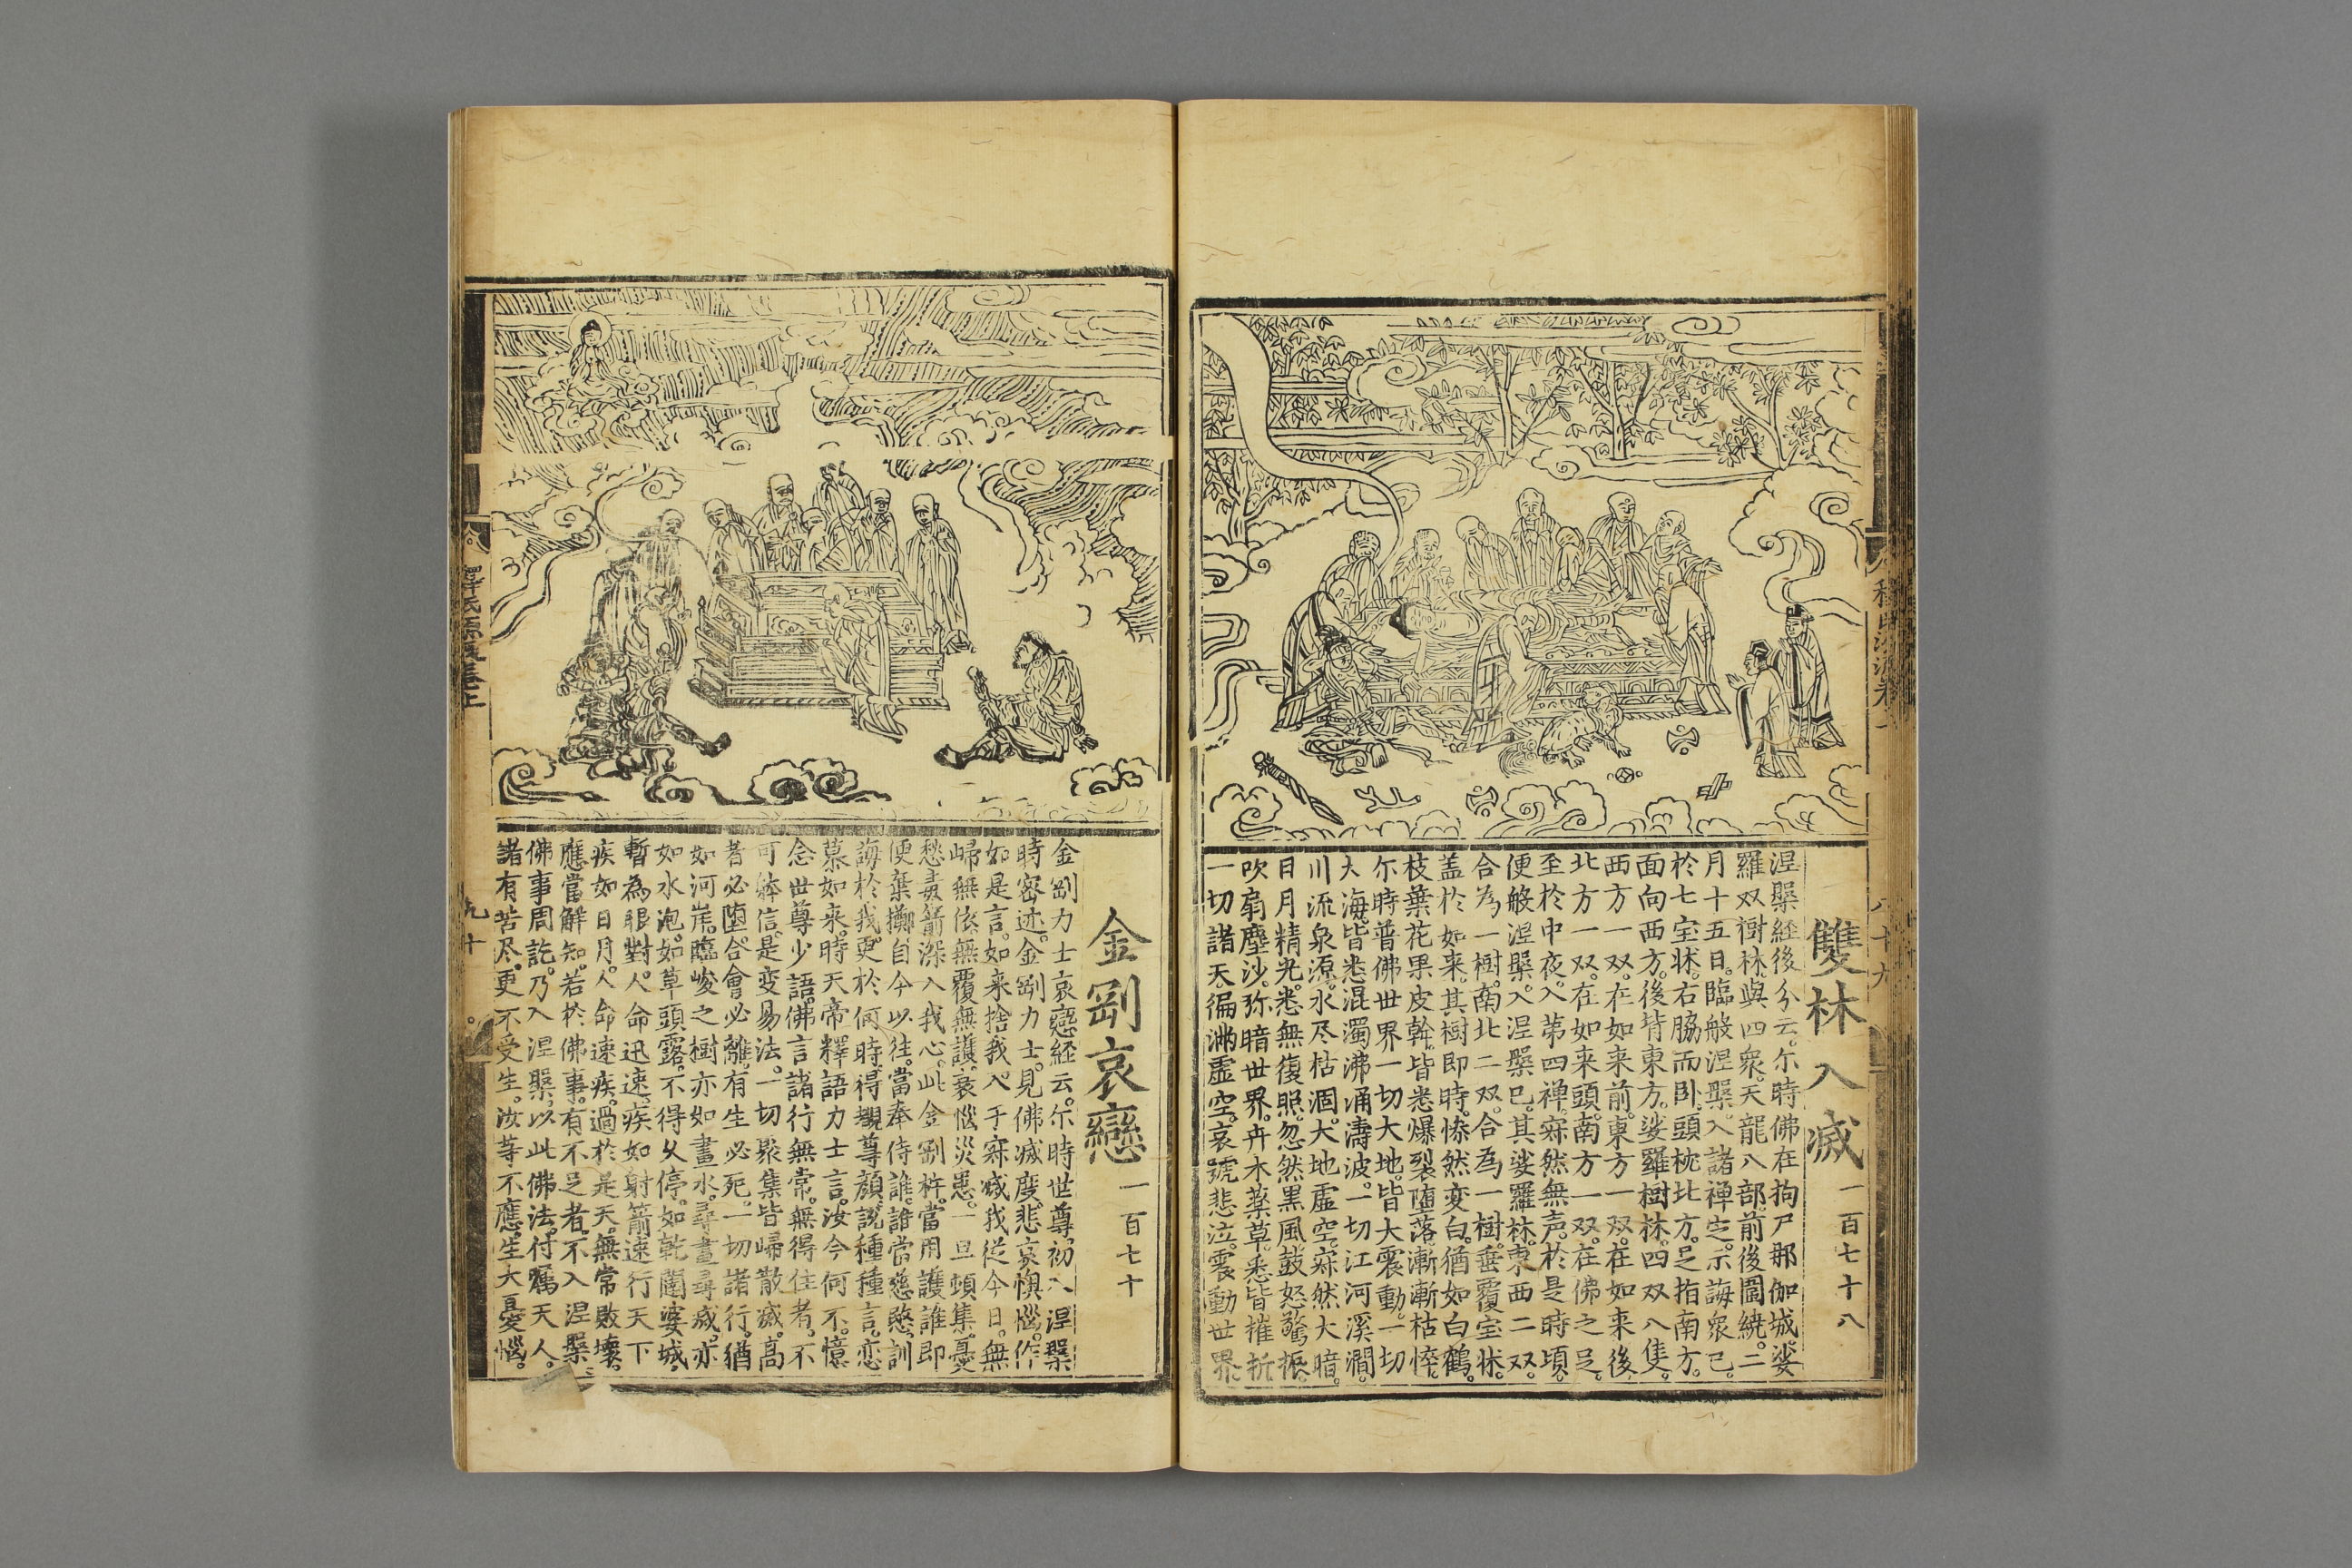 雙林入滅 一百七十八
涅槃経後分云。尓時佛在拘尸那伽城。娑
羅双樹林。與四衆。天龍八部。前後圍繞。二
月十五日。臨般涅槃。入諸禅㝎。示誨衆已。
於七宝牀。右脇而卧。頭枕北方。足指南方。
面向西方。後背東方。娑羅樹林。四双八隻。
西方一双。在如来前。東方一双。在如来後。
北方一双。在如来頭。南方一双。在佛之足。
至於中夜。入苐四禅。寂然無声。於是時頃。
便般涅槃。入涅槃已。其娑羅林。東西二双。
合為一樹。南北二双。合為一樹。垂覆宝牀。
盖於如来。其樹即時。惨然変白。猶如白鶴。
枝葉花果皮幹。皆悉爆裂堕落。漸漸枯悴。
尓時普佛世界。一切大地。皆大震動。一切
大海。皆悉混濁沸涌濤波。一切江河溪澗。
川流泉源。水尽枯涸。大地虚空。寂然大暗。
日月精光。悉無復照。忽然黒風。鼓怒驚振。
吹扇塵沙。弥暗世界。卉木薬草。悉皆摧折
一切諸天。徧滿虚空。哀號悲泣。震動世界。
八十九
金剛哀戀 一百七十
金剛力士哀戀経云。尓時世尊。初入涅槃
時。密迹。金剛力士。見佛滅度。悲哀懊惱。作
如是言。如来捨我。入于寂滅。我從今日。無
歸無依。無覆無護。衰惱災患。一旦頓集。憂
愁毒箭。深入我心。此金剛杵。當用護誰。即
便棄擲。自今以往。當奉侍誰。誰當慈愍。訓
誨於我。更於何時。得覩尊顔。說種種言。恋
慕如来。時天帝釋。語力士言。汝今何不。憶
念世尊少語。佛言。諸行無常。無得住者。不
可体信。是変易法。一切聚集。皆歸散滅。髙
者必堕。合會必離。有生必死。一切諸行。猶
如河崖。臨峻之樹。亦如畫水。尋畫尋滅。亦
如水泡。如草頭露。不得久停。如乾闥婆城。
暫為眼對。人命迅速。疾如射箭。速行天下
疾如日月。人命速疾。過於是天。無常敗壊。
應當解知。若於佛事。有不足者。不入涅槃。
佛事周訖。乃入涅槃。以此佛法。付囑天人。
諸有苦尽。更不受生。汝等不應。生大憂惱。
釋氏源流卷上
九十